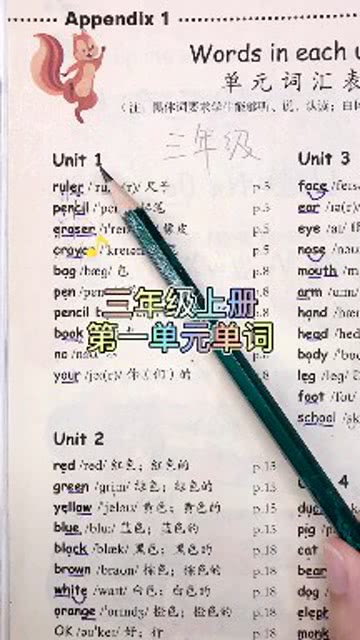 Appendix 1
Words in each u
单元词汇表
(注：黑体词要求学生能够听、说、认读；白
三年级
Unit 1
ruler 尺子 p.5
pencil p.5
eraser 橡皮 p.5
crayon
bag /bæg/ 包 p.8
pen
pencil b
book
no
your /jɔː(r)/ 你（们）的 p.8
三年级上册
第一单元单词
Unit 2
red /red/ 红色；红色的 p.15
green /griːn/ 绿色；绿色的 p.15
yellow /'jeləʊ/ 黄色；黄色的 p.15
blue /bluː/ 蓝色；蓝色的 p.15
black /blæk/ 黑色；黑色的 p.18
brown /braʊn/ 棕色；棕色的 p.18
white /waɪt/ 白色；白色的 p.18
orange /'ɒrɪndʒ/ 橙色；橙色的 p.18
OK /əʊ'keɪ/ 好；行 p.18
Unit 3
face
ear
eye
nose
mouth
arm
hand
head
body
leg
foot
school
4
duck
pig
cat
bear
dog
eleph
monk